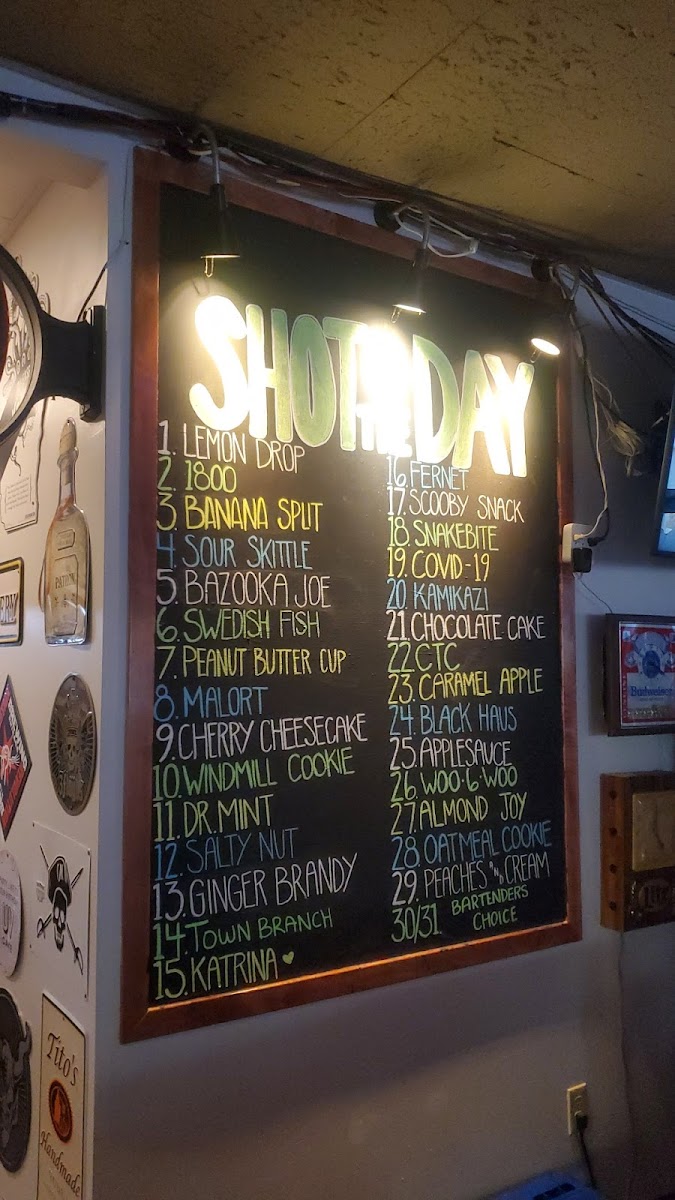 SHOT OF THE DAY
1. LEMON DROP
2. 1800
3. BANANA SPLIT
4. SOUR SKITTLE
5. BAZOOKA JOE
6. SWEDISH FISH
7. PEANUT BUTTER CUP
8. MALORT
9. CHERRY CHEESECAKE
10. WINDMILL COOKIE
11. DR. MINT
12. SALTY NUT
13. GINGER BRANDY
14. TOWN BRANCH
15. KATRINA ♥
16. FERNET
17. SCOOBY SNACK
18. SNAKEBITE
19. COVID-19
20. KAMIKAZI
21. CHOCOLATE CAKE
22. CTC
23. CARAMEL APPLE
24. BLACK HAUS
25. APPLESAUCE
26. WOO·6·WOO
27. ALMOND JOY
28. OATMEAL COOKIE
29. PEACHES "N" CREAM
30/31. BARTENDERS
CHOICE
PATRÓN
Budweiser
Lite
Tito's
Handmade